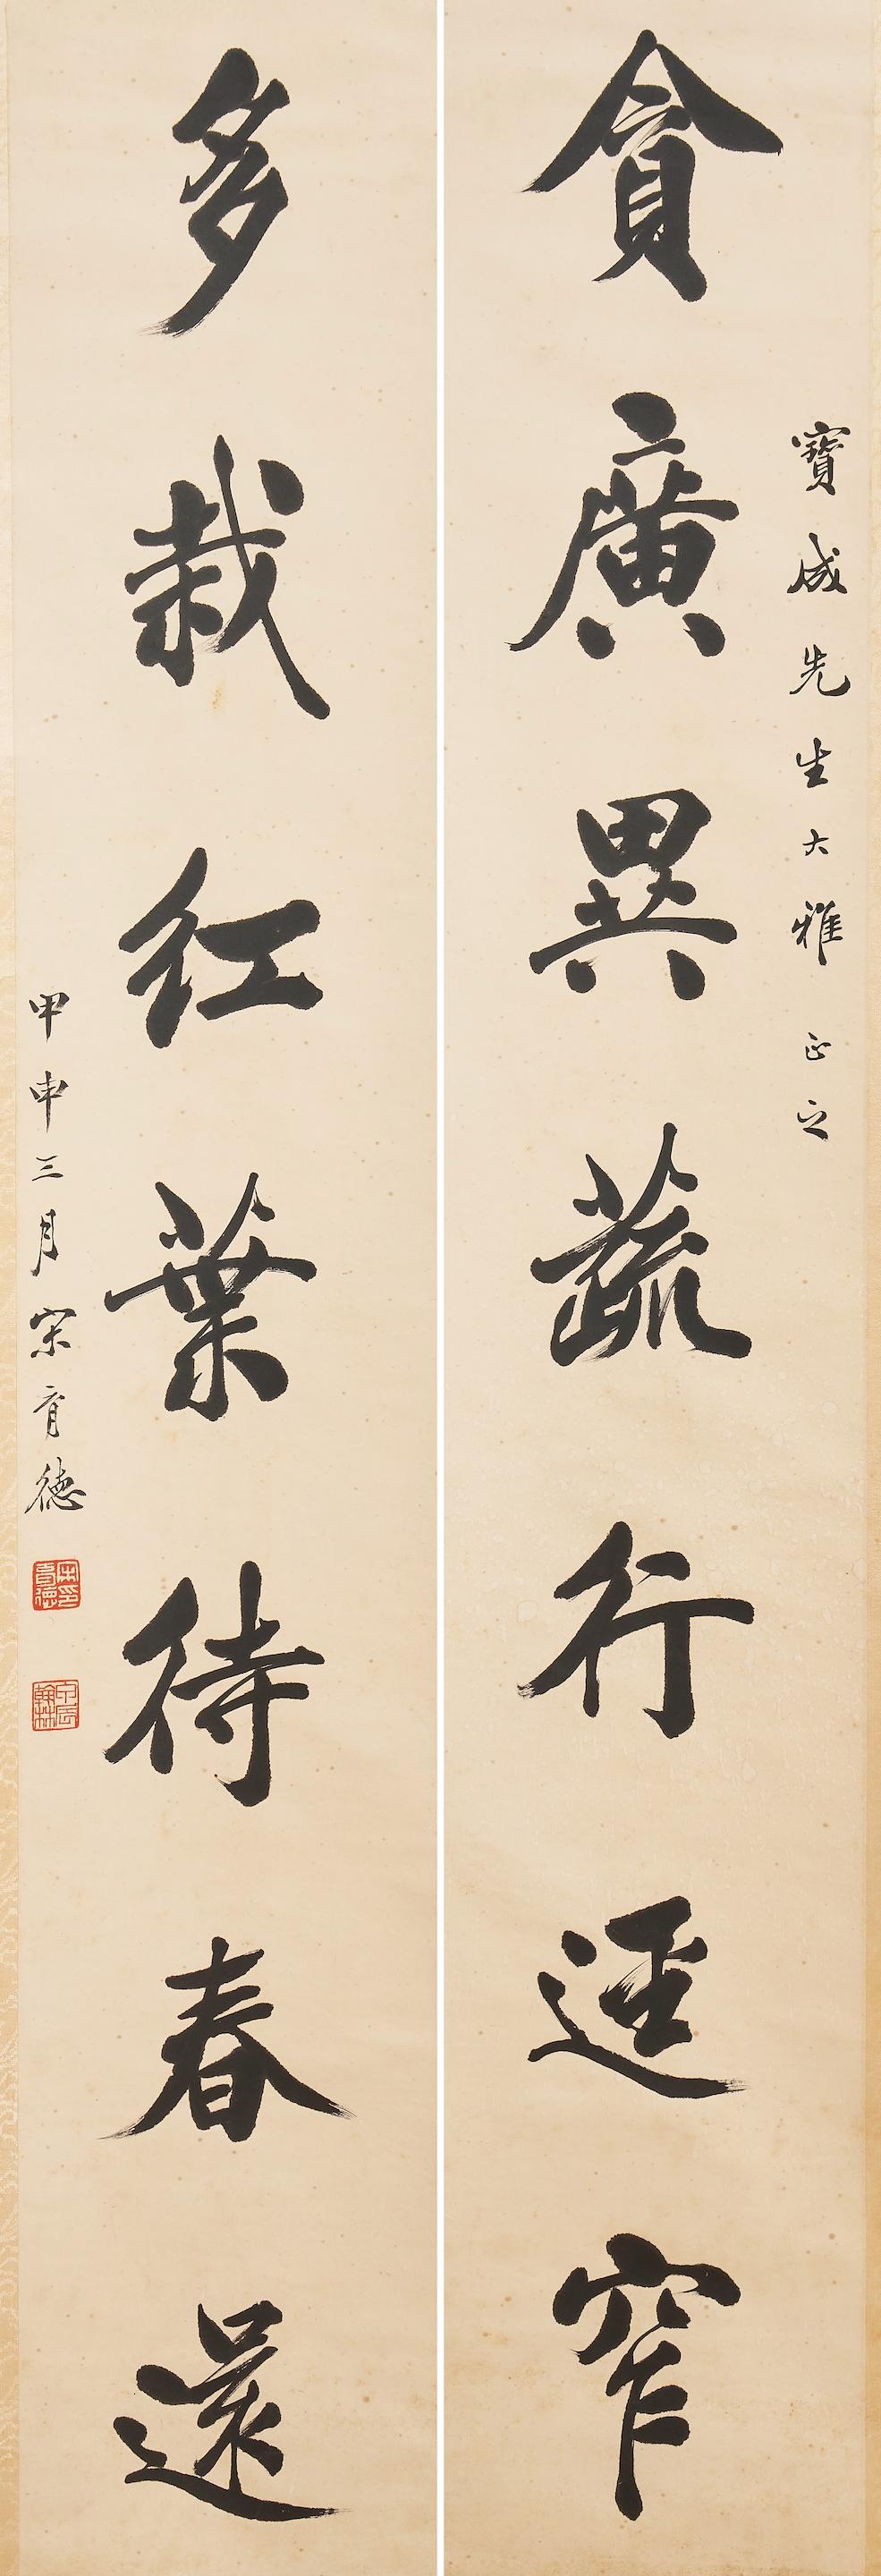 寶成先生大雅 正之
貪廣異蔬行逕窄
多栽紅葉待春還
甲申三月宋育德
宋育德印